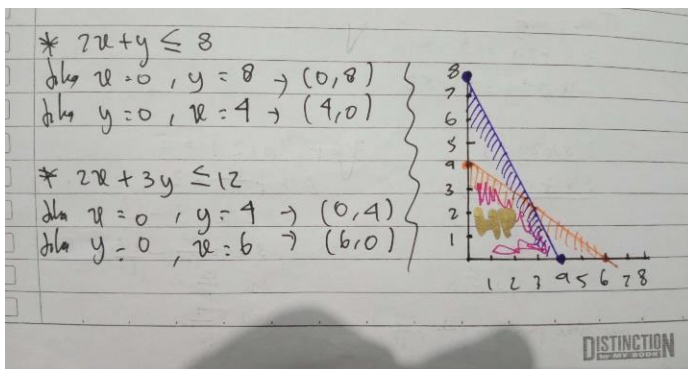 * 2x+y ≤ 8
Jika x=0, y=8 → (0,8)
Jika y=0, x=4 → (4,0)
* 2x+3y ≤ 12
Jika x=0, y=4 → (0,4)
Jika y=0, x=6 → (6,0)
8
7
6
5
4
3
2
1
1 2 3 4 5 6 7 8
HP
DISTINCTION
to MY BOOK